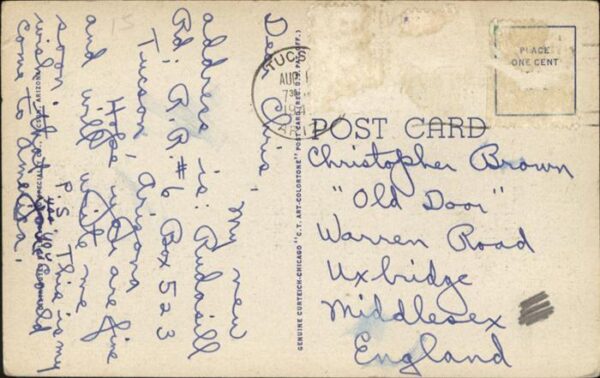 Dear Chris,
My new
address is: Rudasill
Rd; R.R.#6 Box 523
Tucson, Arizona
Hope you are fine
and will write me
soon. P.S. This is my
wish that you could
come to America.
GENUINE CURTEICH-CHICAGO "C.T. ART-COLORTONE" POST CARD (REG. U.S. PAT. OFF.)
TUCS
AUG
PLACE
ONE CENT
POST CARD
Christopher Brown
"Old Door"
Warren Road
Uxbridge
Middlesex
England